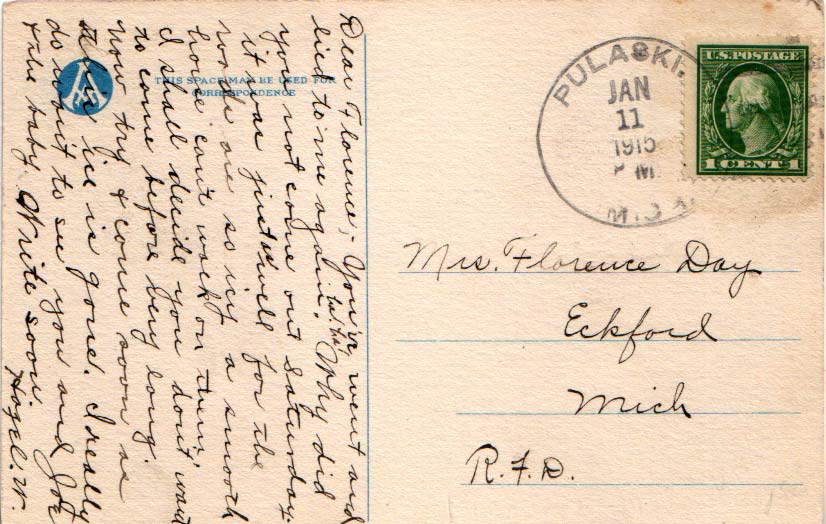 Dear Florence; - You've went and
lied to me again. Why did
you not come out Saturday.
it was just as well for the
roads are so icy a smooth
horse can't work on them,
I shall decide you don't want
to come before very long.
Now try & come soon as
he is gone. I really
do want to see you and Joe
& the baby. Write soon
Hazel. W.
THIS SPACE MAY BE USED FOR
CORRESPONDENCE
PULASKI.
JAN
11
1915
P M
MICH
U.S. POSTAGE
1 CENT 1
Mrs. Florence Day
Eckford
Mich
R.F.D.